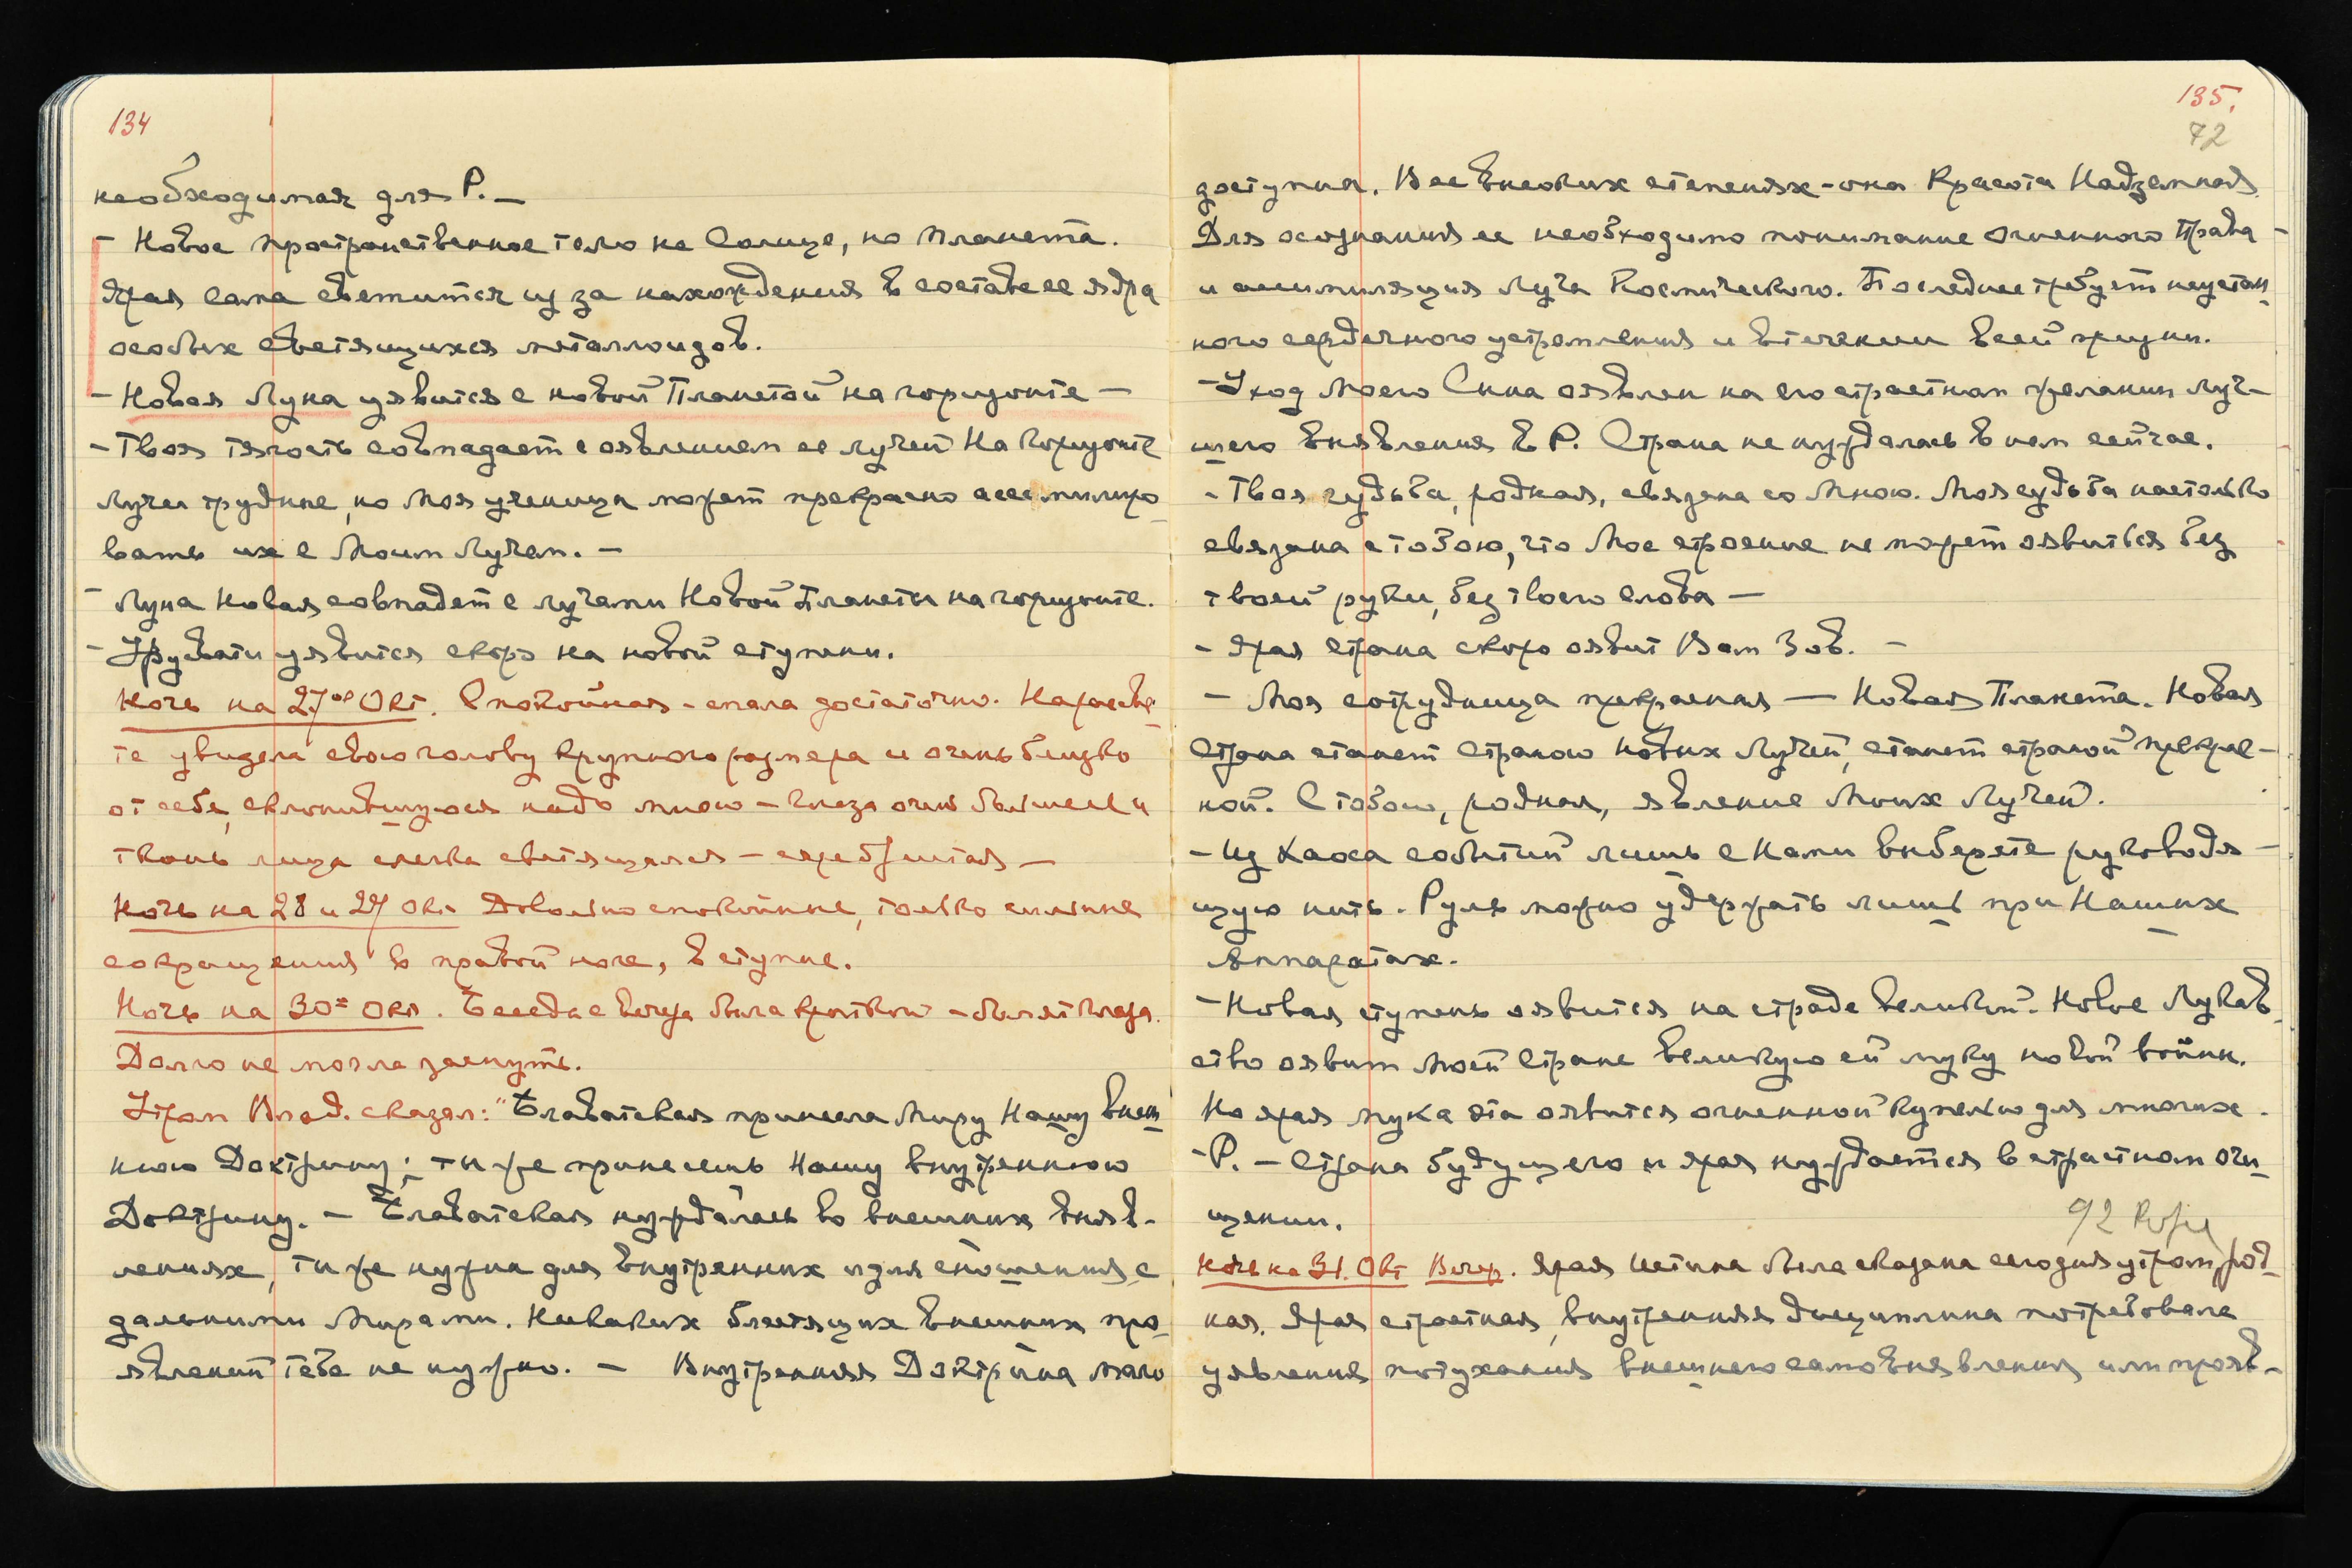 134
необходимая для Р. —
- Новое пространственное тело не Солнце, но планета.
Ярая сама светится из за нахождения в составе ее ядра
особых светящихся металлоидов.
- Новая Луна уявится с новой Планетой на горизонте —
- Твоя тягость совпадает с оявлением ее лучей На Горизонте
Лучи трудные, но Моя ученица может прекрасно ассимилиро-
вать их с Моим Лучем. —
- Луна Новая совпадет с лучами Новой Планеты на горизонте.
- Урусвати уявится скоро на новой ступени.
Ночь на 27ое Окт. Спокойная - спала достаточно. На рассве-
те увидела свою голову крупного размера и очень близко
от себя, склонившуюся надо мною - глаза очень большие и
ткань лица слегка светящаяся - серебристая —
Ночь на 28 и 29 Окт. Довольно спокойные, только сильные
сокращения в правой ноге, в ступне.
Ночь на 30ое Окт. Беседа с вечера была краткой - болят глаза.
Долго не могла заснуть.
Утром Влад. сказал: "Блаватская принесла Миру Нашу внеш-
нюю Доктрину; ты же принесешь Нашу внутреннюю
Доктрину. — Блаватская нуждалась во внешних выяв-
лениях, ты же нужна для внутренних и для сношения с
дальними Мирами. Никаких блестящих внешних про-
явлений тебе не нужно. — Внутренняя Доктрина мало
135.
72
доступна. В ее высоких степенях - она Красота Надземная
Для осознания ее необходимо понимание Огненного Права -
и ассимиляция Луча Космического. Последнее требует неустан-
ного сердечного устремления и в течении всей жизни.
- Уход Моего Сына оявлен на его страстном желании луч-
шего выявления в Р. Страна не нуждалась в нем сейчас.
- Твоя судьба, родная, связана со Мною. Моя судьба настолько
связана с тобою, что Мое строение не может оявиться без
твоей руки, без твоего слова —
- Ярая страна скоро оявит Вам Зов. —
- Моя сотрудница прекрасная — Новая Планета. Новая
Страна станет Страною новых Лучей, станет страной прекрас-
ной. С тобою, родная, явление Моих Лучей.
- Из Хаоса событий лишь с Нами выберете руководя-
щую нить. Руль можно удержать лишь при Наших
Аппаратах.
- Новая ступень оявится на страде великой. Новое Лукав-
ство оявит Моей Стране великую ей муку новой войны.
Но ярая мука эта оявится огненной купелью для многих.
- Р. - Страна будущего и ярая нуждается в страстном очи-
щении.
Ночь на 31. Окт Вечер. Ярая Истина была сказана сегодня утром, род-
ная. Ярая страстная, внутренняя дисциплина потребовала
уявления потухания внешнего самовыявления или прояв-